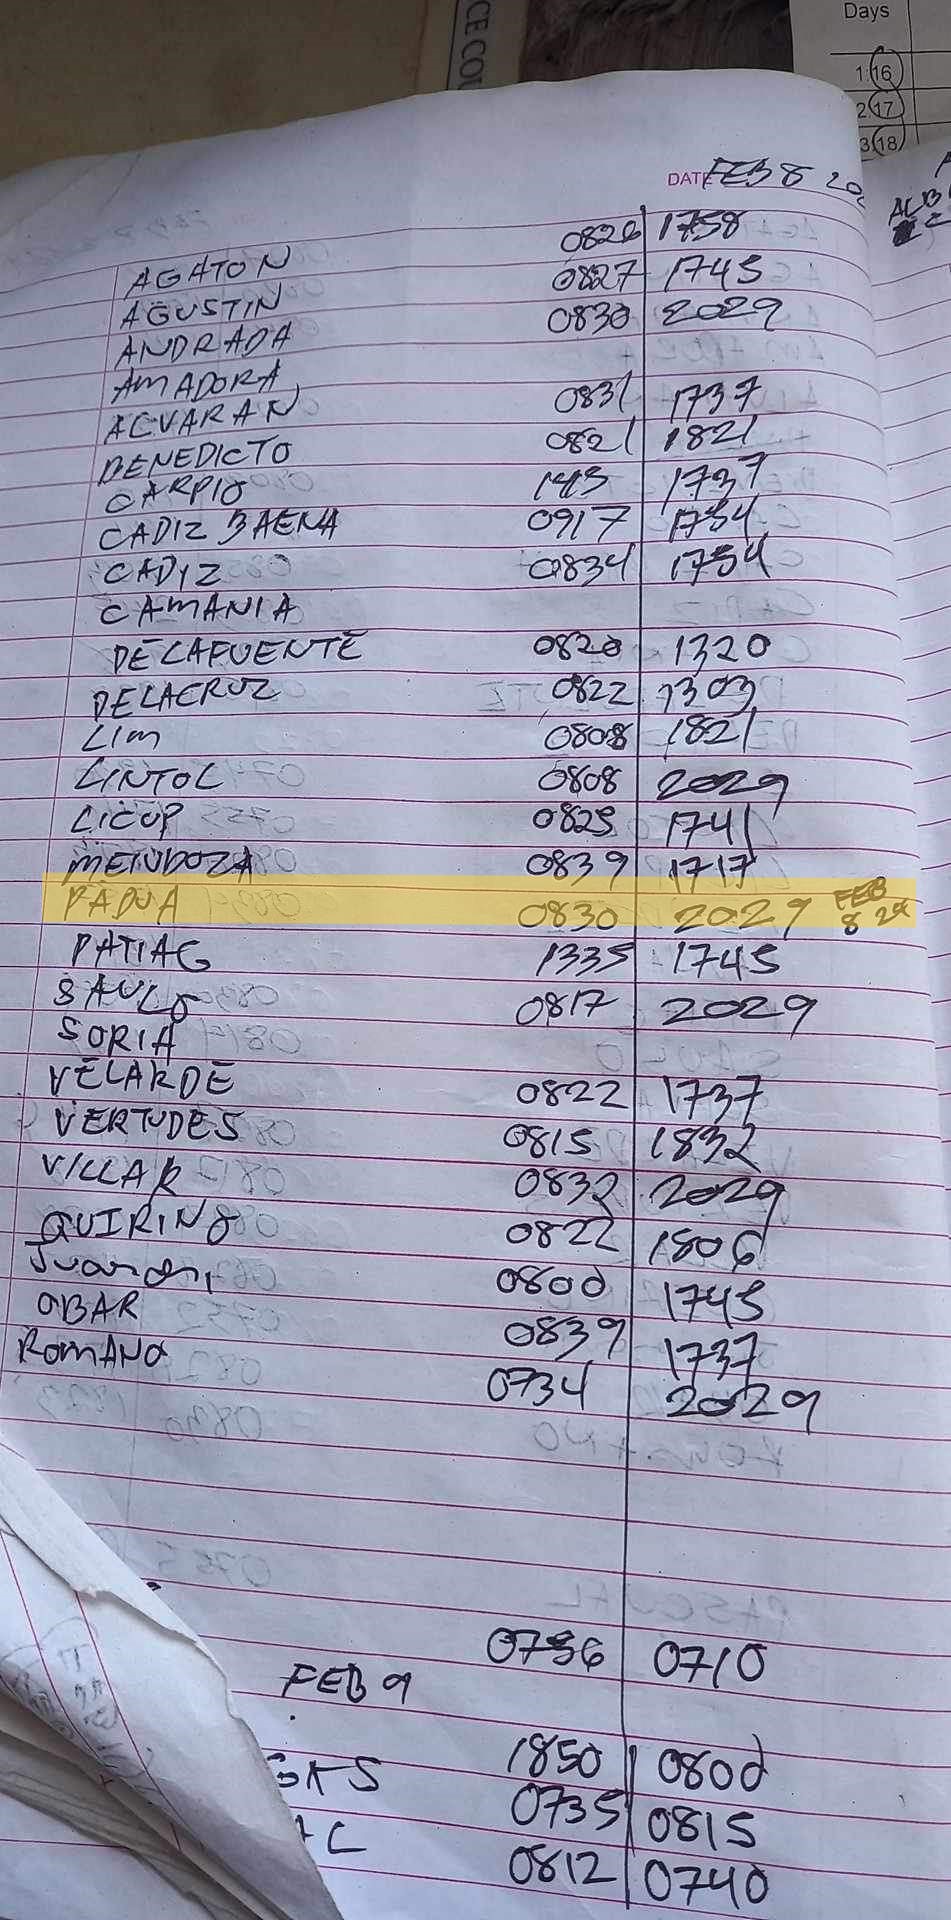 Days
1:16
2:17
3:18
CE COU
DATE FEB 8 20
AGATON 0826 1758
AGUSTIN 0827 1745
ANDRADA 0830 2029
AMADORA
ACVARAN 0831 1737
BENEDICTO 0821 1821
CARPIO 145 1737
CADIZ BAENA 0917 1754
CADIZ 0834 1754
CAMANIA
DELAFUENTE 0820 1320
DELACRUZ 0822 1303
LIM 0808 1821
LINTOL 0808 2029
LICUP 0825 1741
MENDOZA 0839 1717
PADUA 0830 2029 FEB 8 24
PATIAG 1335 1745
SAULO 0817 2029
SORIA
VELARDE 0822 1737
VERTUDES 0815 1832
VILLAR 0832 2029
QUIRINO 0822 1806
0800 1745
OBAR 0839 1737
ROMANO 0734 2029
0736 0710
FEB 9
GAS 1850 0800
AC 0735 0815
0812 0740